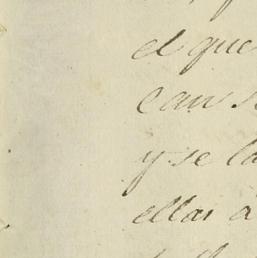 el que
can s
y se la
ellas a